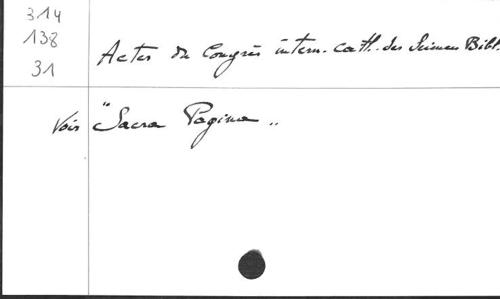 314
138
31
Actes du Congrès intern. cath. des Sciences Bibl.
Voir "Sacra Pagina"